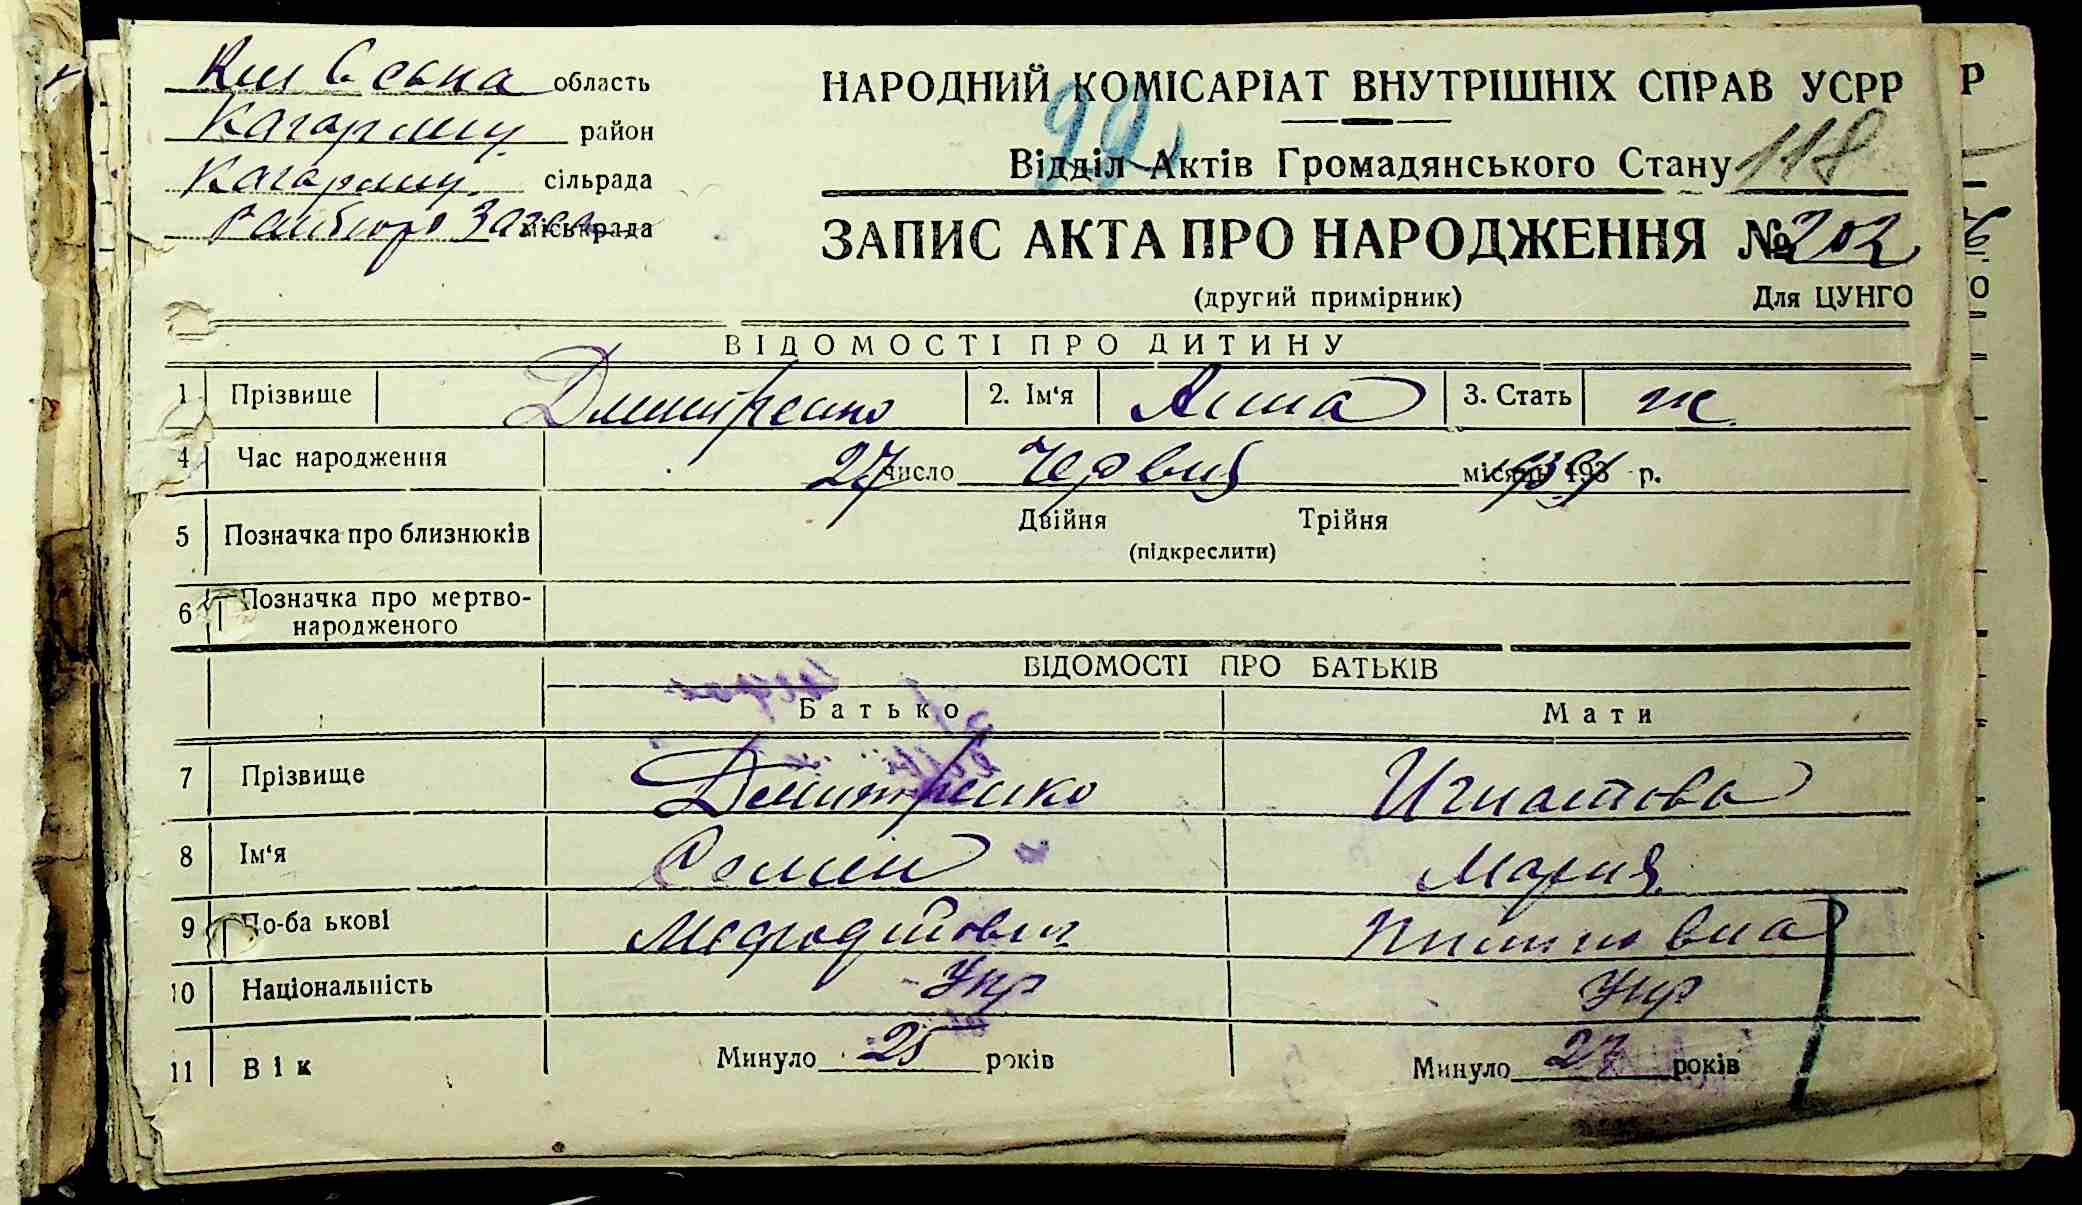 Київська область
Кагарлиц. район
Кагарлиц. сільрада
Райбюро Загсу міськрада
НАРОДНИЙ КОМІСАРІАТ ВНУТРІШНІХ СПРАВ УСРР
99
Відділ Актів Громадянського Стану 118
ЗАПИС АКТА ПРО НАРОДЖЕННЯ № 202
(другий примірник) Для ЦУНГО
ВІДОМОСТІ ПРО ДИТИНУ
1 Прізвище Дмитренко 2. Ім'я Анна 3. Стать ж.
4 Час народження 27 число Червня місяць 193 р.
5 Позначка про близнюків Двійня Трійня
(підкреслити)
6 Позначка про мертво-
народженого
ВІДОМОСТІ ПРО БАТЬКІВ
Батько Мати
7 Прізвище Дмитренко Игнатова
8 Ім'я Семен Мария
9 По-ба ькові Мефодійович
10 Національність Укр Укр
11 Вік Минуло 25 років Минуло 27 років